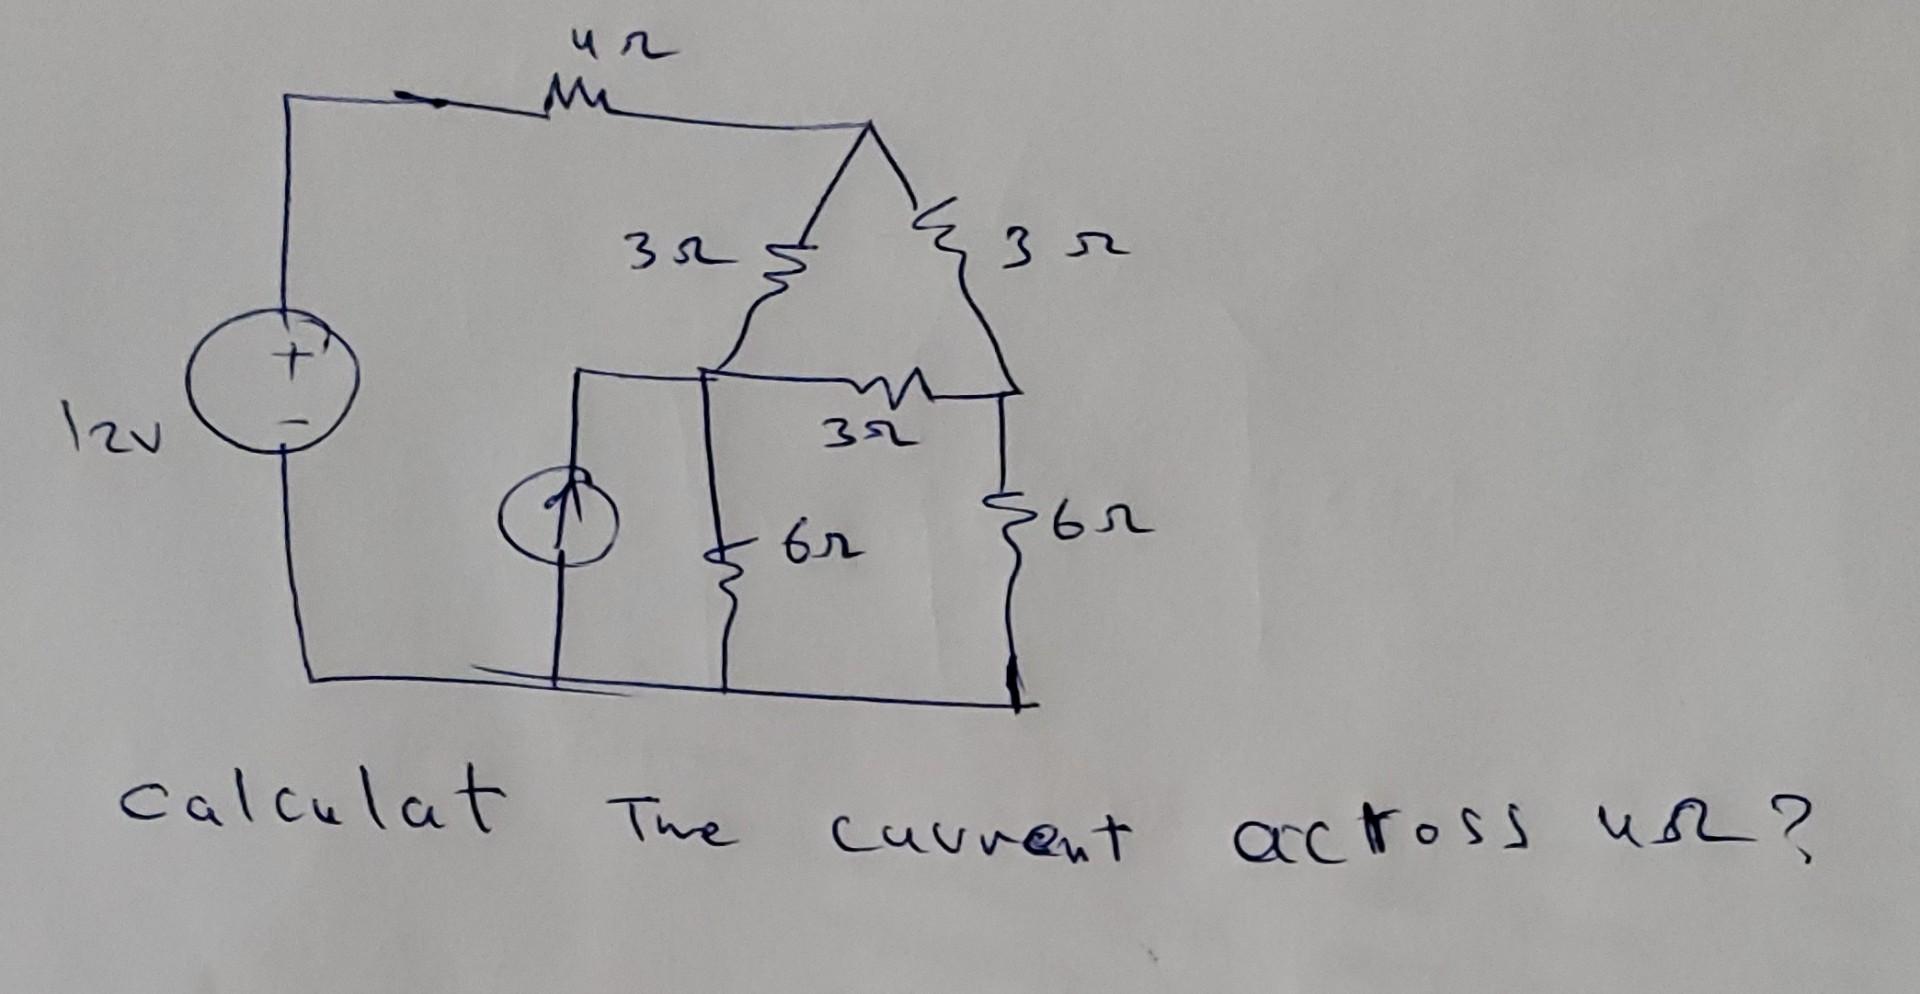 4Ω
3Ω
3Ω
12v
+
-
3Ω
6Ω
6Ω
calculat The current across 4Ω?